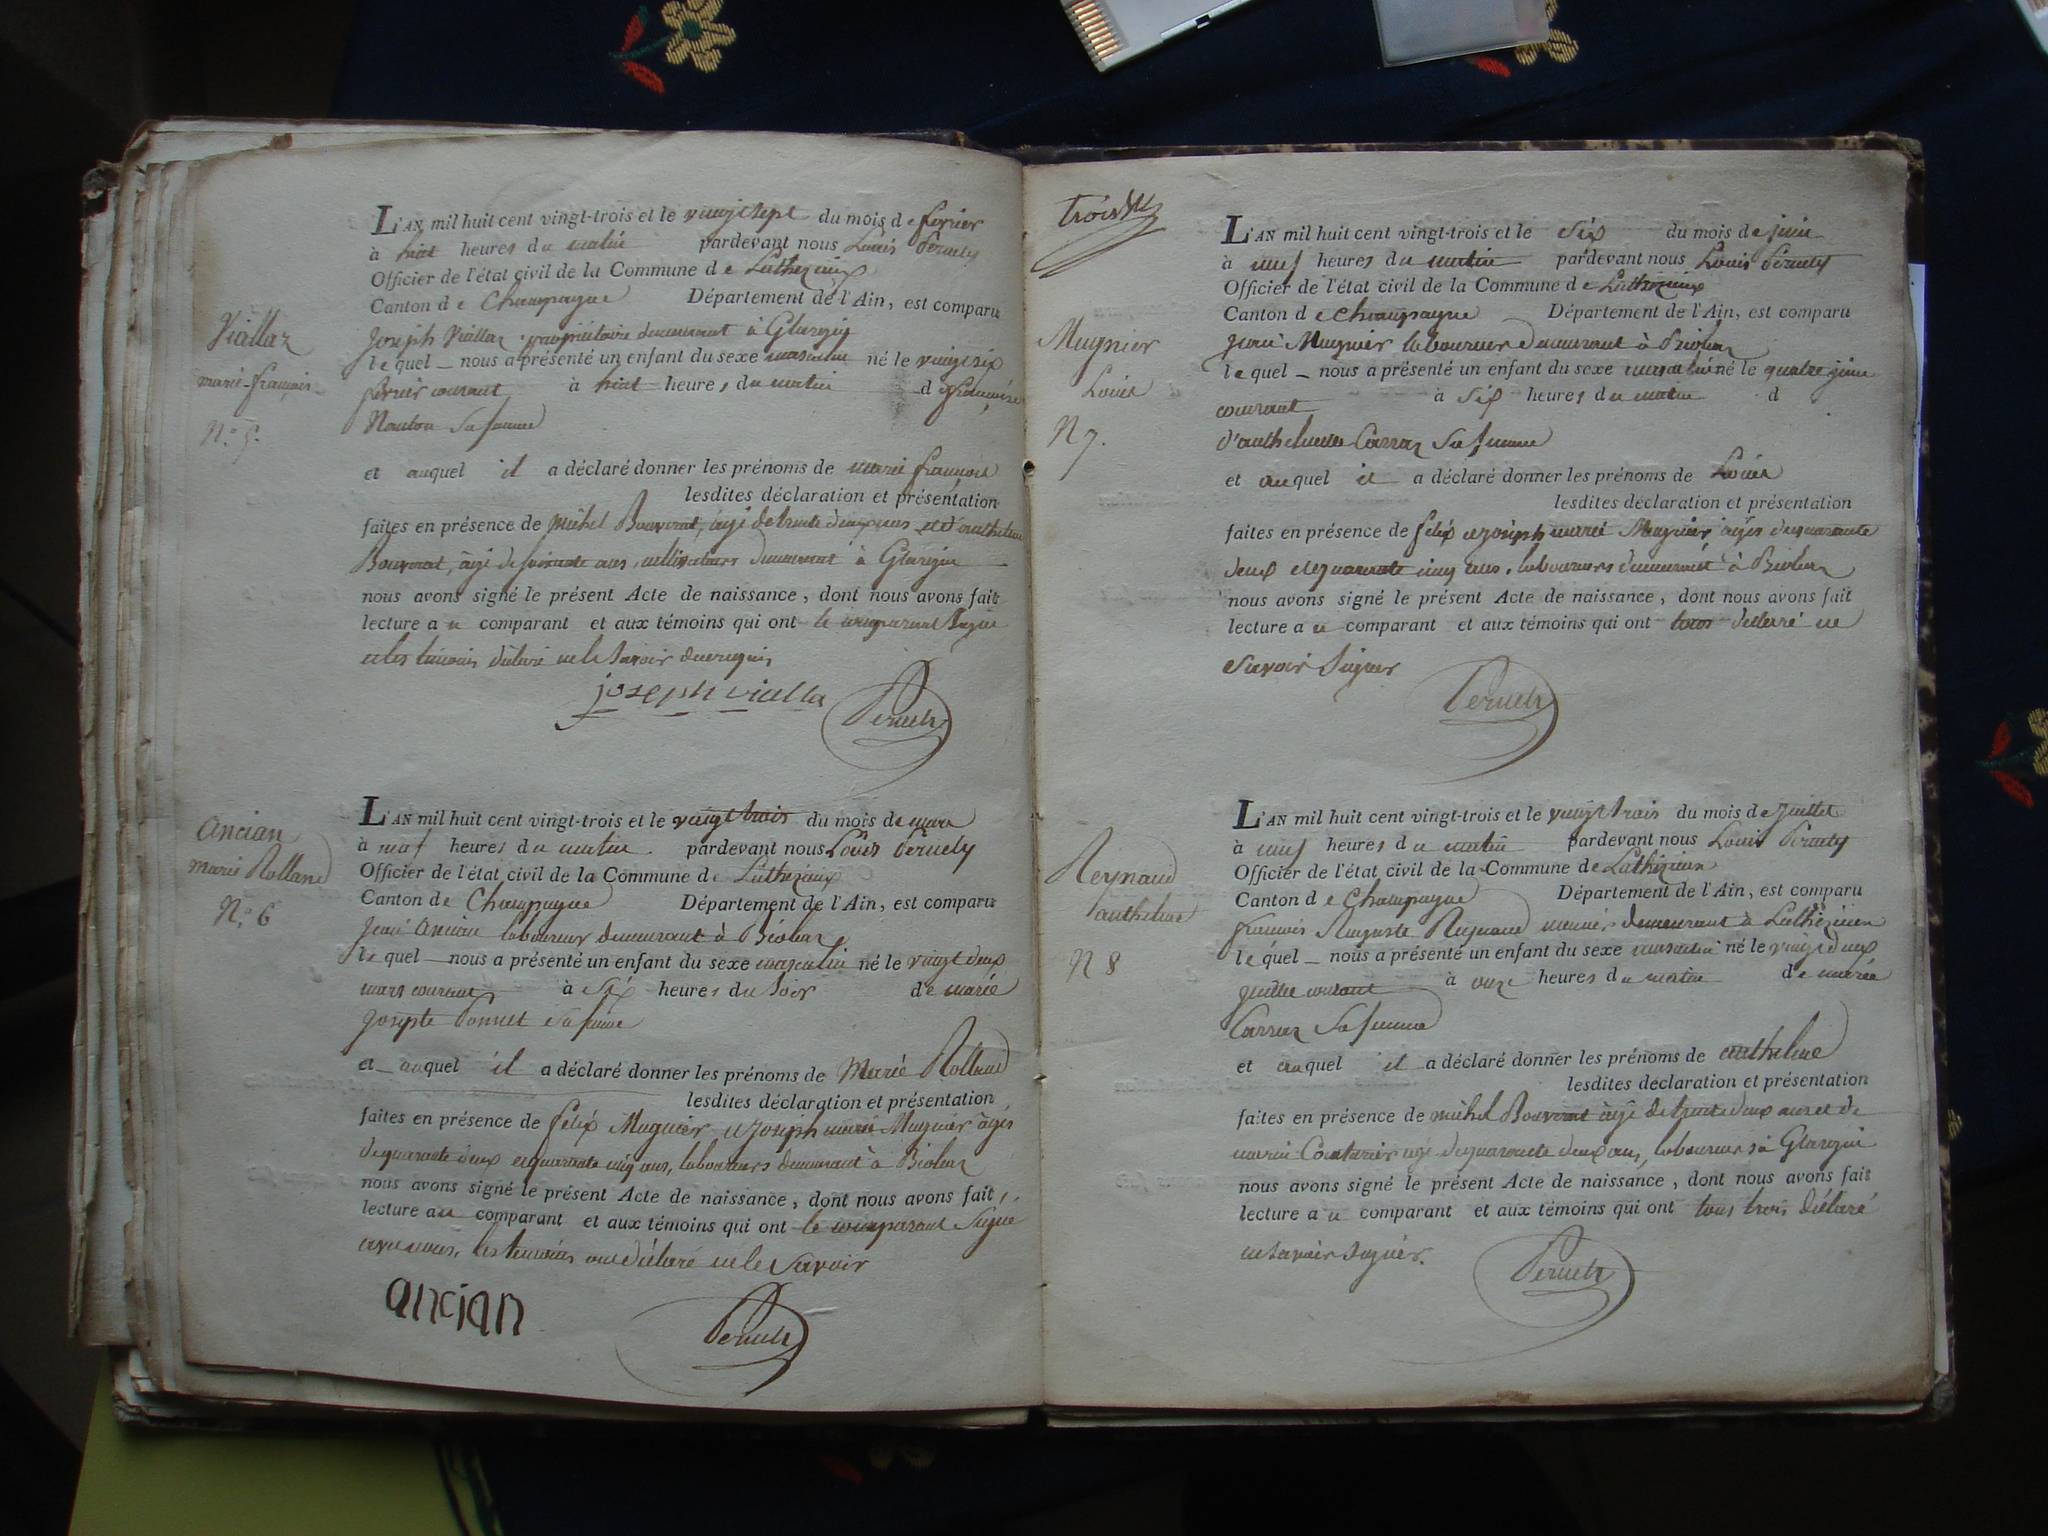 Viallaz
marie-françois
N.º 5.
L'AN mil huit cent vingt-trois et le vingt sept du mois de fevrier
à huit heures du matin pardevant nous Louis Peruely
Officier de l'état civil de la Commune de Luthezieux
Canton de Champagne Département de l'Ain, est comparu
joseph Viallaz propriétaire demeurant à Glargin
lequel nous a présenté un enfant du sexe masculin né le vingt six
fevrier courant à huit heures du matin de
sa femme
et auquel il a déclaré donner les prénoms de marie françois
lesdites déclaration et présentation
faites en présence de michel Bouvrat, âgé de trente deux ans et d'anthelme
Bouvrat, âgé de soixante ans, cultivateurs demeurant à Glargin
nous avons signé le présent Acte de naissance, dont nous avons fait
lecture au comparant et aux témoins qui ont le comparant Signé
et les temoins déclaré ne le Savoir de ce requis
joseph vialla
Ancian
marie Rolland
N.º 6
L'AN mil huit cent vingt-trois et le vingt trois du mois de mars
à neuf heures du matin pardevant nous Louis Peruely
Officier de l'état civil de la Commune de Luthezieux
Canton de Champagne Département de l'Ain, est comparu
jean Ancian laboureur demeurant à Biolaz
lequel nous a présenté un enfant du sexe masculin né le vingt deux
mars courant à Six heures du Soir de marie
josephte Sa femme
et auquel il a déclaré donner les prénoms de Marie Rolland
lesdites déclaration et présentation
faites en présence de félix Mugnier et joseph marie Mugnier âgés
de quarante deux et quarante cinq ans, laboureurs demeurant à Biolaz
nous avons signé le présent Acte de naissance, dont nous avons fait
lecture au comparant et aux témoins qui ont le comparant Signé
avec nous, les temoins ont déclaré ne le Savoir
ancian
trois
Mugnier
Louis
N 7.
L'AN mil huit cent vingt-trois et le six du mois de juin
à neuf heures du matin pardevant nous Louis Peruely
Officier de l'état civil de la Commune de Luthezieux
Canton de Champagne Département de l'Ain, est comparu
jean Mugnier laboureur demeurant à Biolaz
lequel nous a présenté un enfant du sexe masculin né le quatre juin
courant à six heures du matin d
d'anthelmette Carraz Sa femme
et auquel il a déclaré donner les prénoms de Louis
lesdites déclaration et présentation
faites en présence de félix et joseph marie Mugnier âgés de quarante
deux et quarante cinq ans, laboureurs demeurant à Biolaz
nous avons signé le présent Acte de naissance, dont nous avons fait
lecture au comparant et aux témoins qui ont tous déclaré ne
Savoir Signer
Reynaud
anthelme
N 8
L'AN mil huit cent vingt-trois et le vingt trois du mois de juillet
à neuf heures du matin pardevant nous Louis Peruely
Officier de l'état civil de la Commune de Luthezieux
Canton de Champagne Département de l'Ain, est comparu
françois Auguste Reynaud demeurant à Luthezieux
lequel nous a présenté un enfant du sexe masculin né le vingt deux
juillet courant à onze heures du matin de marie
Carraz Sa femme
et auquel il a déclaré donner les prénoms de anthelme
lesdites déclaration et présentation
faites en présence de michel Bouvrat âgé de trente deux ans et de
marin Couturier âgé de quarante deux ans, laboureurs à Glargin
nous avons signé le présent Acte de naissance, dont nous avons fait
lecture au comparant et aux témoins qui ont tous trois déclaré
ne Savoir Signer.